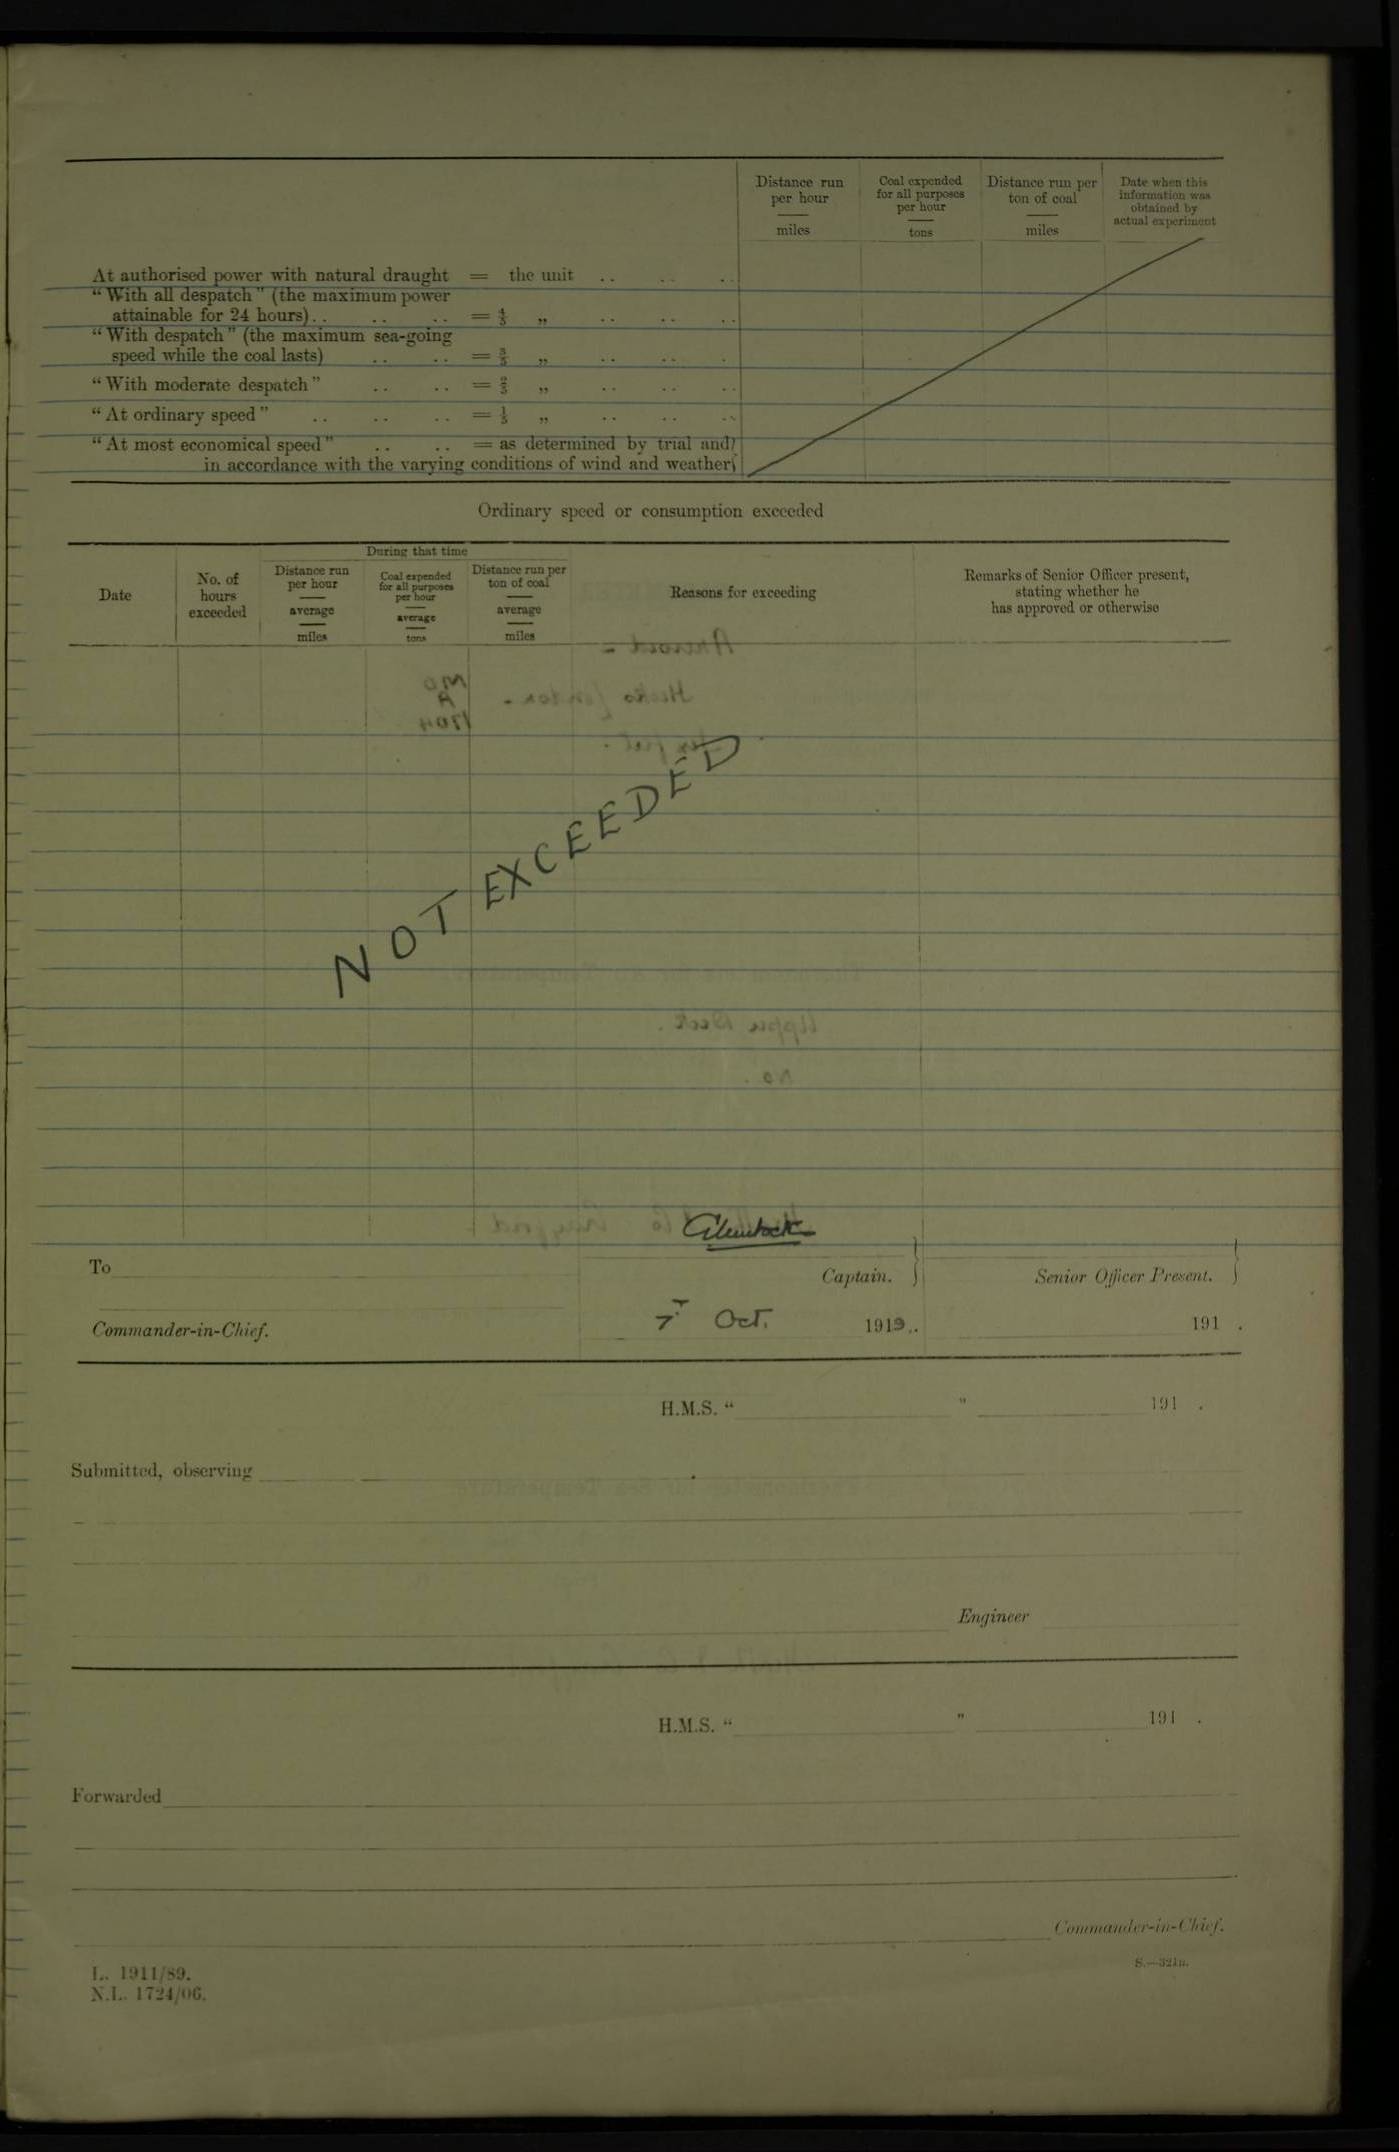 Distance run per hour miles
Coal expended for all purposes per hour tons
Distance run per ton of coal miles
Date when this information was obtained by actual experiment
At authorised power with natural draught = the unit .. .. ..
“With all despatch” (the maximum power
attainable for 24 hours).. .. .. = 4/5 „ .. .. ..
“With despatch” (the maximum sea-going
speed while the coal lasts) .. .. = 3/5 „ .. .. .
“With moderate despatch” .. .. = 2/5 „ .. .. ..
“At ordinary speed” .. .. .. = 1/5 „ .. .. ..
“At most economical speed” .. .. = as determined by trial and}
in accordance with the varying conditions of wind and weather}
Ordinary speed or consumption exceeded
During that time
Date
No. of hours exceeded
Distance run per hour average miles
Coal expended for all purposes per hour average tons
Distance run per ton of coal average miles
Reasons for exceeding
Remarks of Senior Officer present, stating whether he has approved or otherwise
NOT EXCEEDED
To
Captain. }
Senior Officer Present. }
Commander-in-Chief.
7 Oct. 1913.
191 .
H.M.S. “ ” 191 .
Submitted, observing
Engineer
H.M.S. “ ” 191 .
Forwarded
Commander-in-Chief.
L. 1911/89.
N.L. 1724/06.